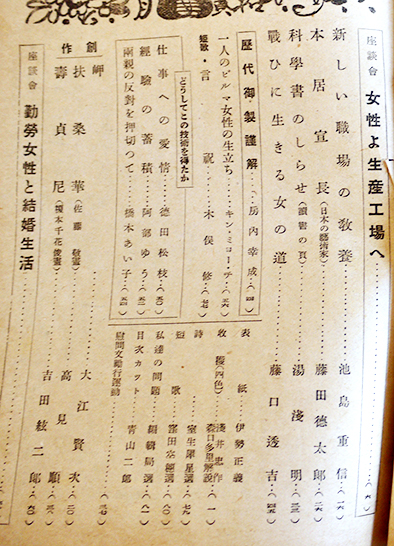 座談會 女性よ生産工場へ
新しい職場の敎養 池島重信
本居宣長(日本の藝術家) 藤田德太郎
科學書のしらせ(讀書の頁) 湯淺明
戰ひに生きる女の道 藤口透吉
歷代御製謹解 房内幸成
一人のビルマ女性の生立ち キン・ミヨー・チ
短歌・言祝 木俣修
どうしてこの技術を得たか
仕事への愛情 德田松枝
經驗の蓄積 阿部ゆう
兩親の反對を押切つて 橋本あい子
表紙 伊勢正義
收穫(四色) 淺井忠作
森口多里解說
詩 室生犀星選
短歌 窪田空穗選
私達の問題 編輯局選
目次カット 靑山二郎
慰問文勵行運動
創作
岬 大江賢次
扶桑華(佐藤敬畫) 高見順
壽貞尼(榎本千花俊畫) 吉田絃二郎
座談會 勤勞女性と結婚生活